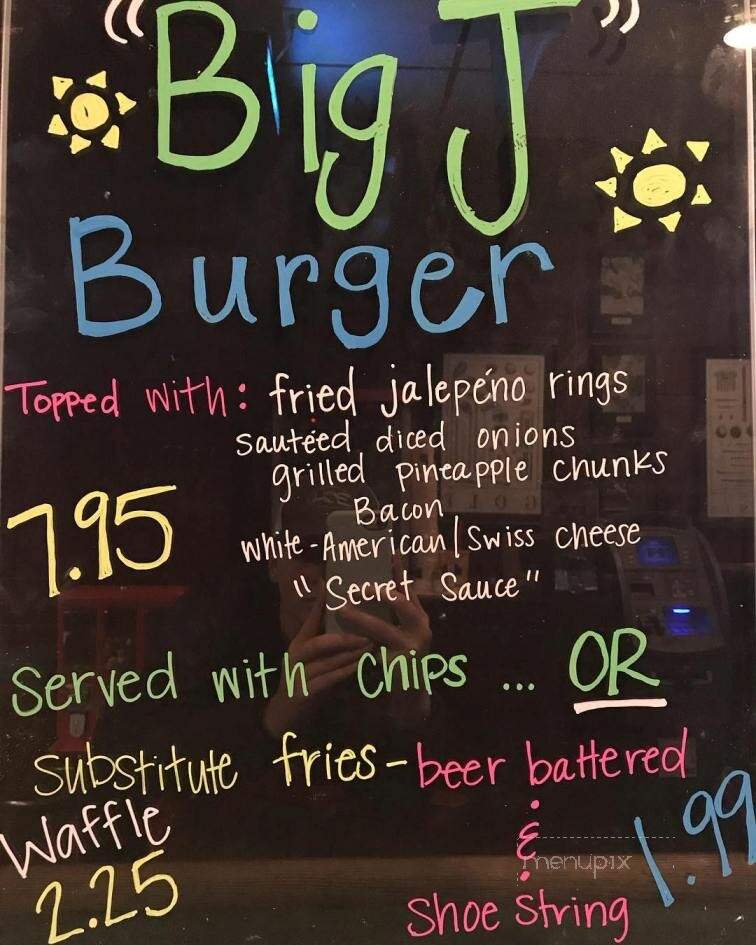 "Big J"
Burger
Topped with: fried jalepéno rings
sautéed diced onions
grilled pineapple chunks
Bacon
White-American/Swiss cheese
"Secret Sauce"
7.95
Served with chips ... OR
substitute fries - beer battered
Waffle
2.25
&
Shoe String
1.99
menupix